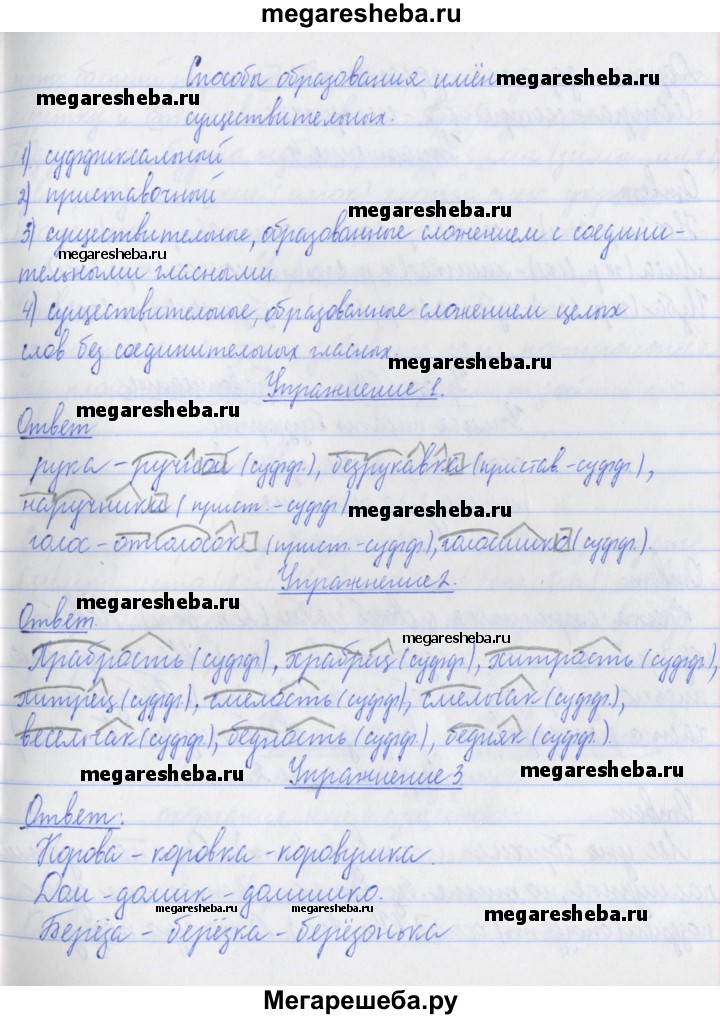 megaresheba.ru
Способы образования имён megaresheba.ru
megaresheba.ru
существительных.
1) суффиксальный
2) приставочный
megaresheba.ru
3) существительные, образованные сложением с соедини-
megaresheba.ru
тельными гласными
4) существительные, образованные сложением целых
слов без соединительных гласных.
Упражнение 1.
megaresheba.ru
Ответ
рука - ручной (суфф.), безрукавка (пристав.-суфф.),
наручники (прист.-суфф.)
megaresheba.ru
голос - отголосок (прист.-суфф.), голосишко (суфф.).
Упражнение 2.
megaresheba.ru
Ответ.
megaresheba.ru
Храбрость (суфф.), храбрец (суфф.), хитрость (суфф.),
хитрец (суфф.), смелость (суфф.), смельчак (суфф.),
весельчак (суфф.), бедность (суфф.), бедняк (суфф.).
megaresheba.ru
Упражнение 3
megaresheba.ru
Ответ:
Корова - коровка - коровушка.
Дом - домик - домишко.
megaresheba.ru megaresheba.ru megaresheba.ru
Берёза - берёзка - берёзонька
Мегарешеба.ру